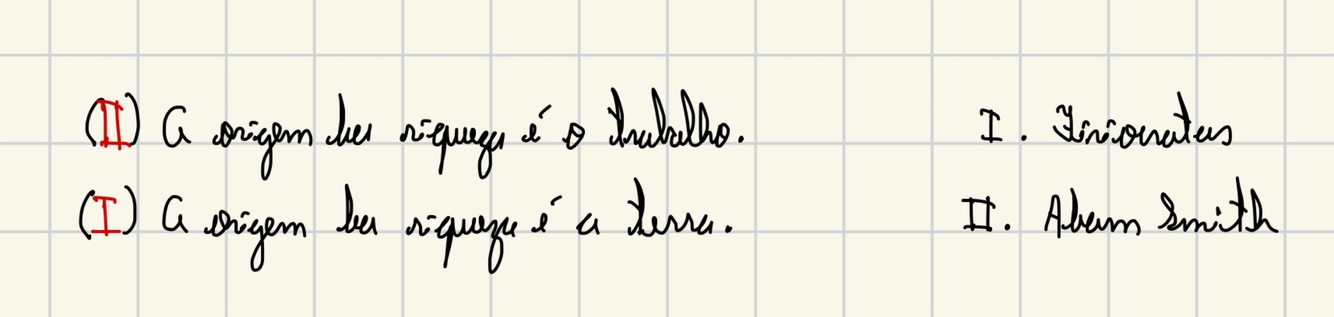 (II) A origem da riqueza é o trabalho. I. Fisiocratas
(I) A origem da riqueza é a terra. II. Adam Smith